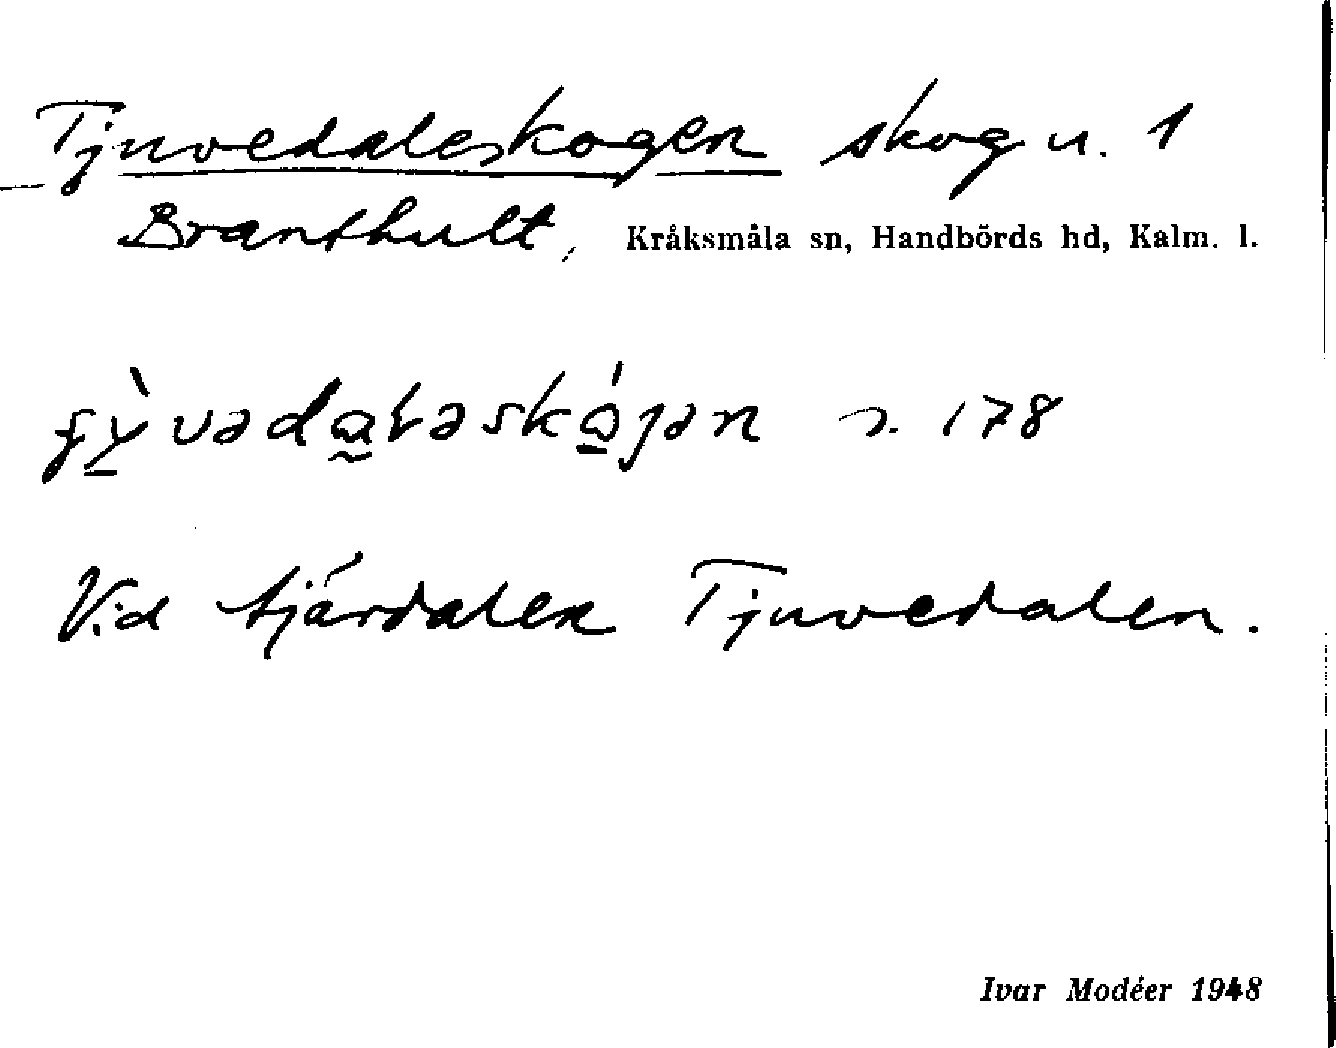 Tjuvedaleskogen skog u. 1
Branthult, Kråksmåla sn, Handbörds hd, Kalm. l.
s. 178
Vid fjärdalen Tjuvedalen.
Ivar Modéer 1948